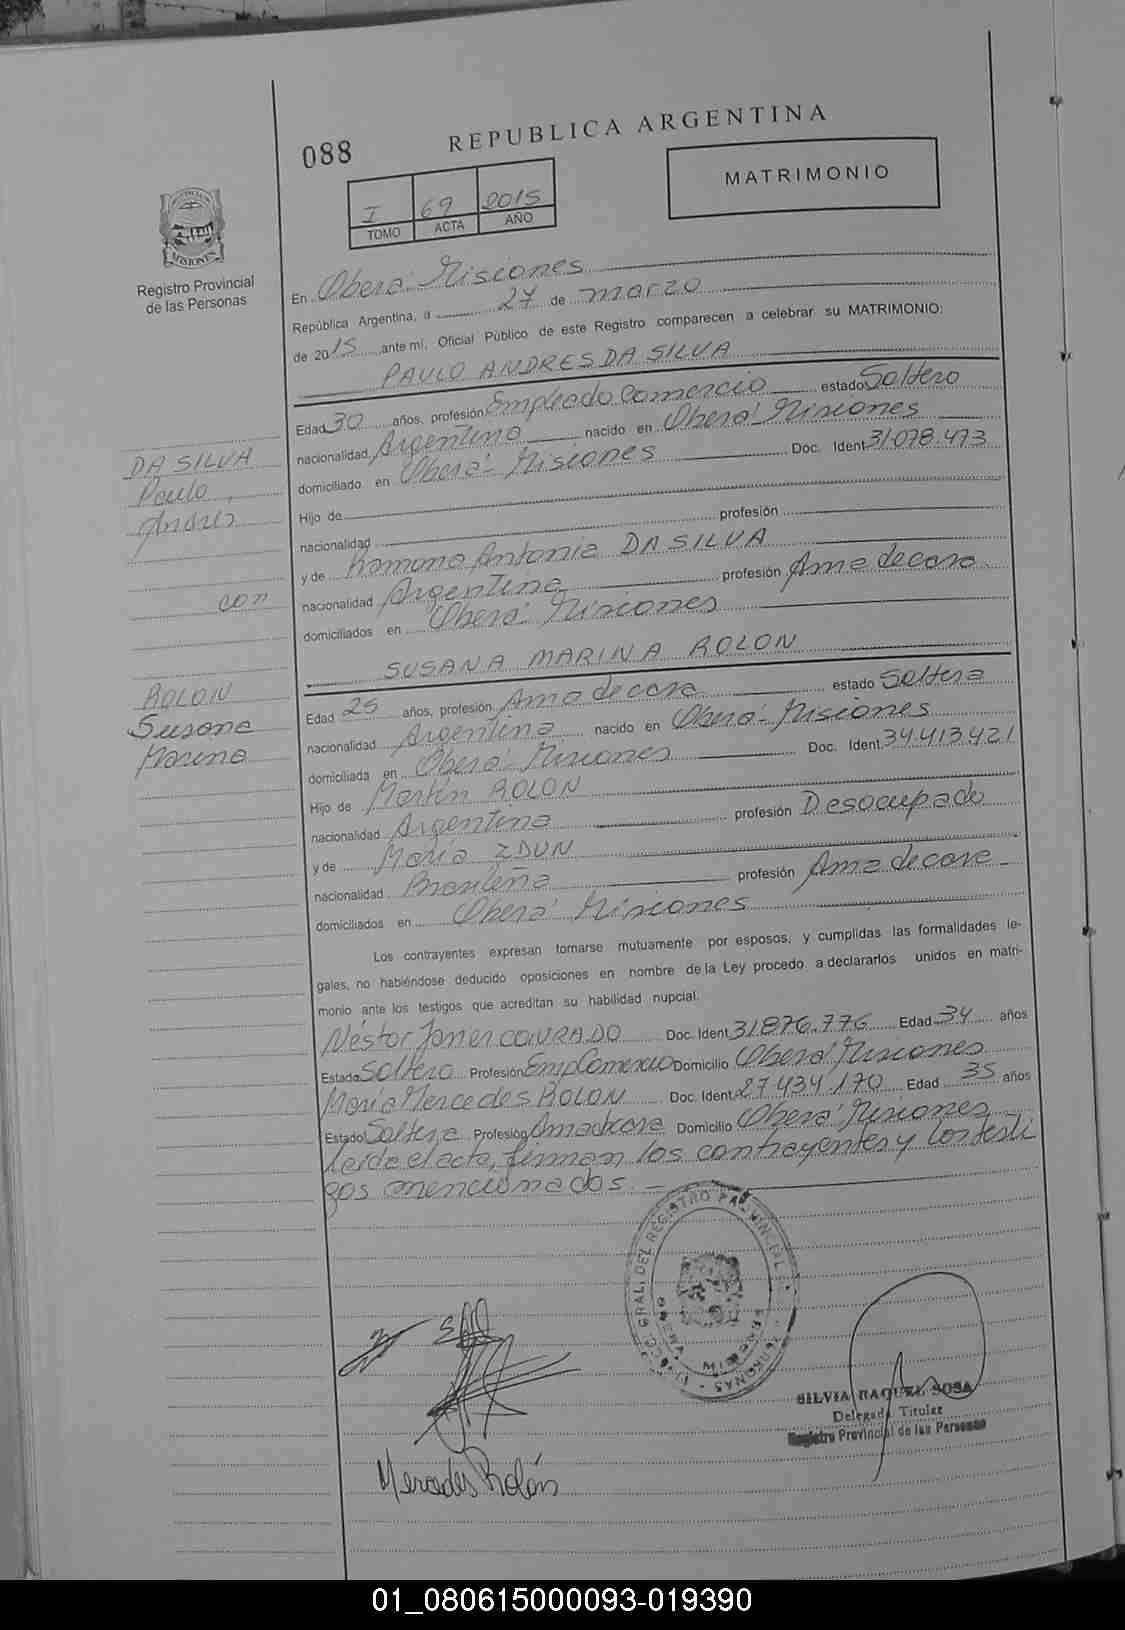 088
REPUBLICA ARGENTINA
MATRIMONIO
I 69 2015
TOMO ACTA AÑO
PROVINCIA
MISIONES
Registro Provincial
de las Personas
En Oberá Misiones
República Argentina, a 27 de marzo
de 2015 ante mí, Oficial Público de este Registro comparecen a celebrar su MATRIMONIO:
PAULO ANDRES DA SILVA
Edad 30 años, profesión Empleado Comercio estado Soltero
nacionalidad Argentino nacido en Oberá Misiones
domiciliado en Oberá Misiones Doc. Ident. 31.078.473
Hijo de
nacionalidad profesión
y de Ramona Antonia DA SILVA
nacionalidad Argentina profesión Ama de casa
domiciliados en Oberá Misiones
DA SILVA
Paulo
Andres
con
ROLON
Susana
Marina
SUSANA MARINA ROLON
Edad 25 años, profesión Ama de casa estado Soltera
nacionalidad Argentina nacido en Oberá Misiones
domiciliada en Oberá Misiones Doc. Ident. 34.413.421
Hijo de Martin ROLON
nacionalidad Argentina profesión Desocupado
y de Maria ZDUN
nacionalidad Brasileña profesión Ama de casa
domiciliados en Oberá Misiones
Los contrayentes expresan tomarse mutuamente por esposos, y cumplidas las formalidades le-
gales, no habiéndose deducido oposiciones en nombre de la Ley procedo a declararlos unidos en matri-
monio ante los testigos que acreditan su habilidad nupcial.
Néstor Javier CONRADO Doc. Ident. 31876.776 Edad 34 años
Estado Soltero Profesión Emp Comercio Domicilio Oberá Misiones
Maria Mercedes ROLON Doc. Ident. 27.434.170 Edad 35 años
Estado Soltera Profesión Ama de casa Domicilio Oberá Misiones
Leida el acta, firman los contrayentes y los testi
gos mencionados. —
GRAL. DEL REGISTRO PROVINCIAL
PERSONAS
Mercedes Rolón
SILVIA RAQUEL SOSA
Delegada Titular
Registro Provincial de las Personas
01_080615000093-019390